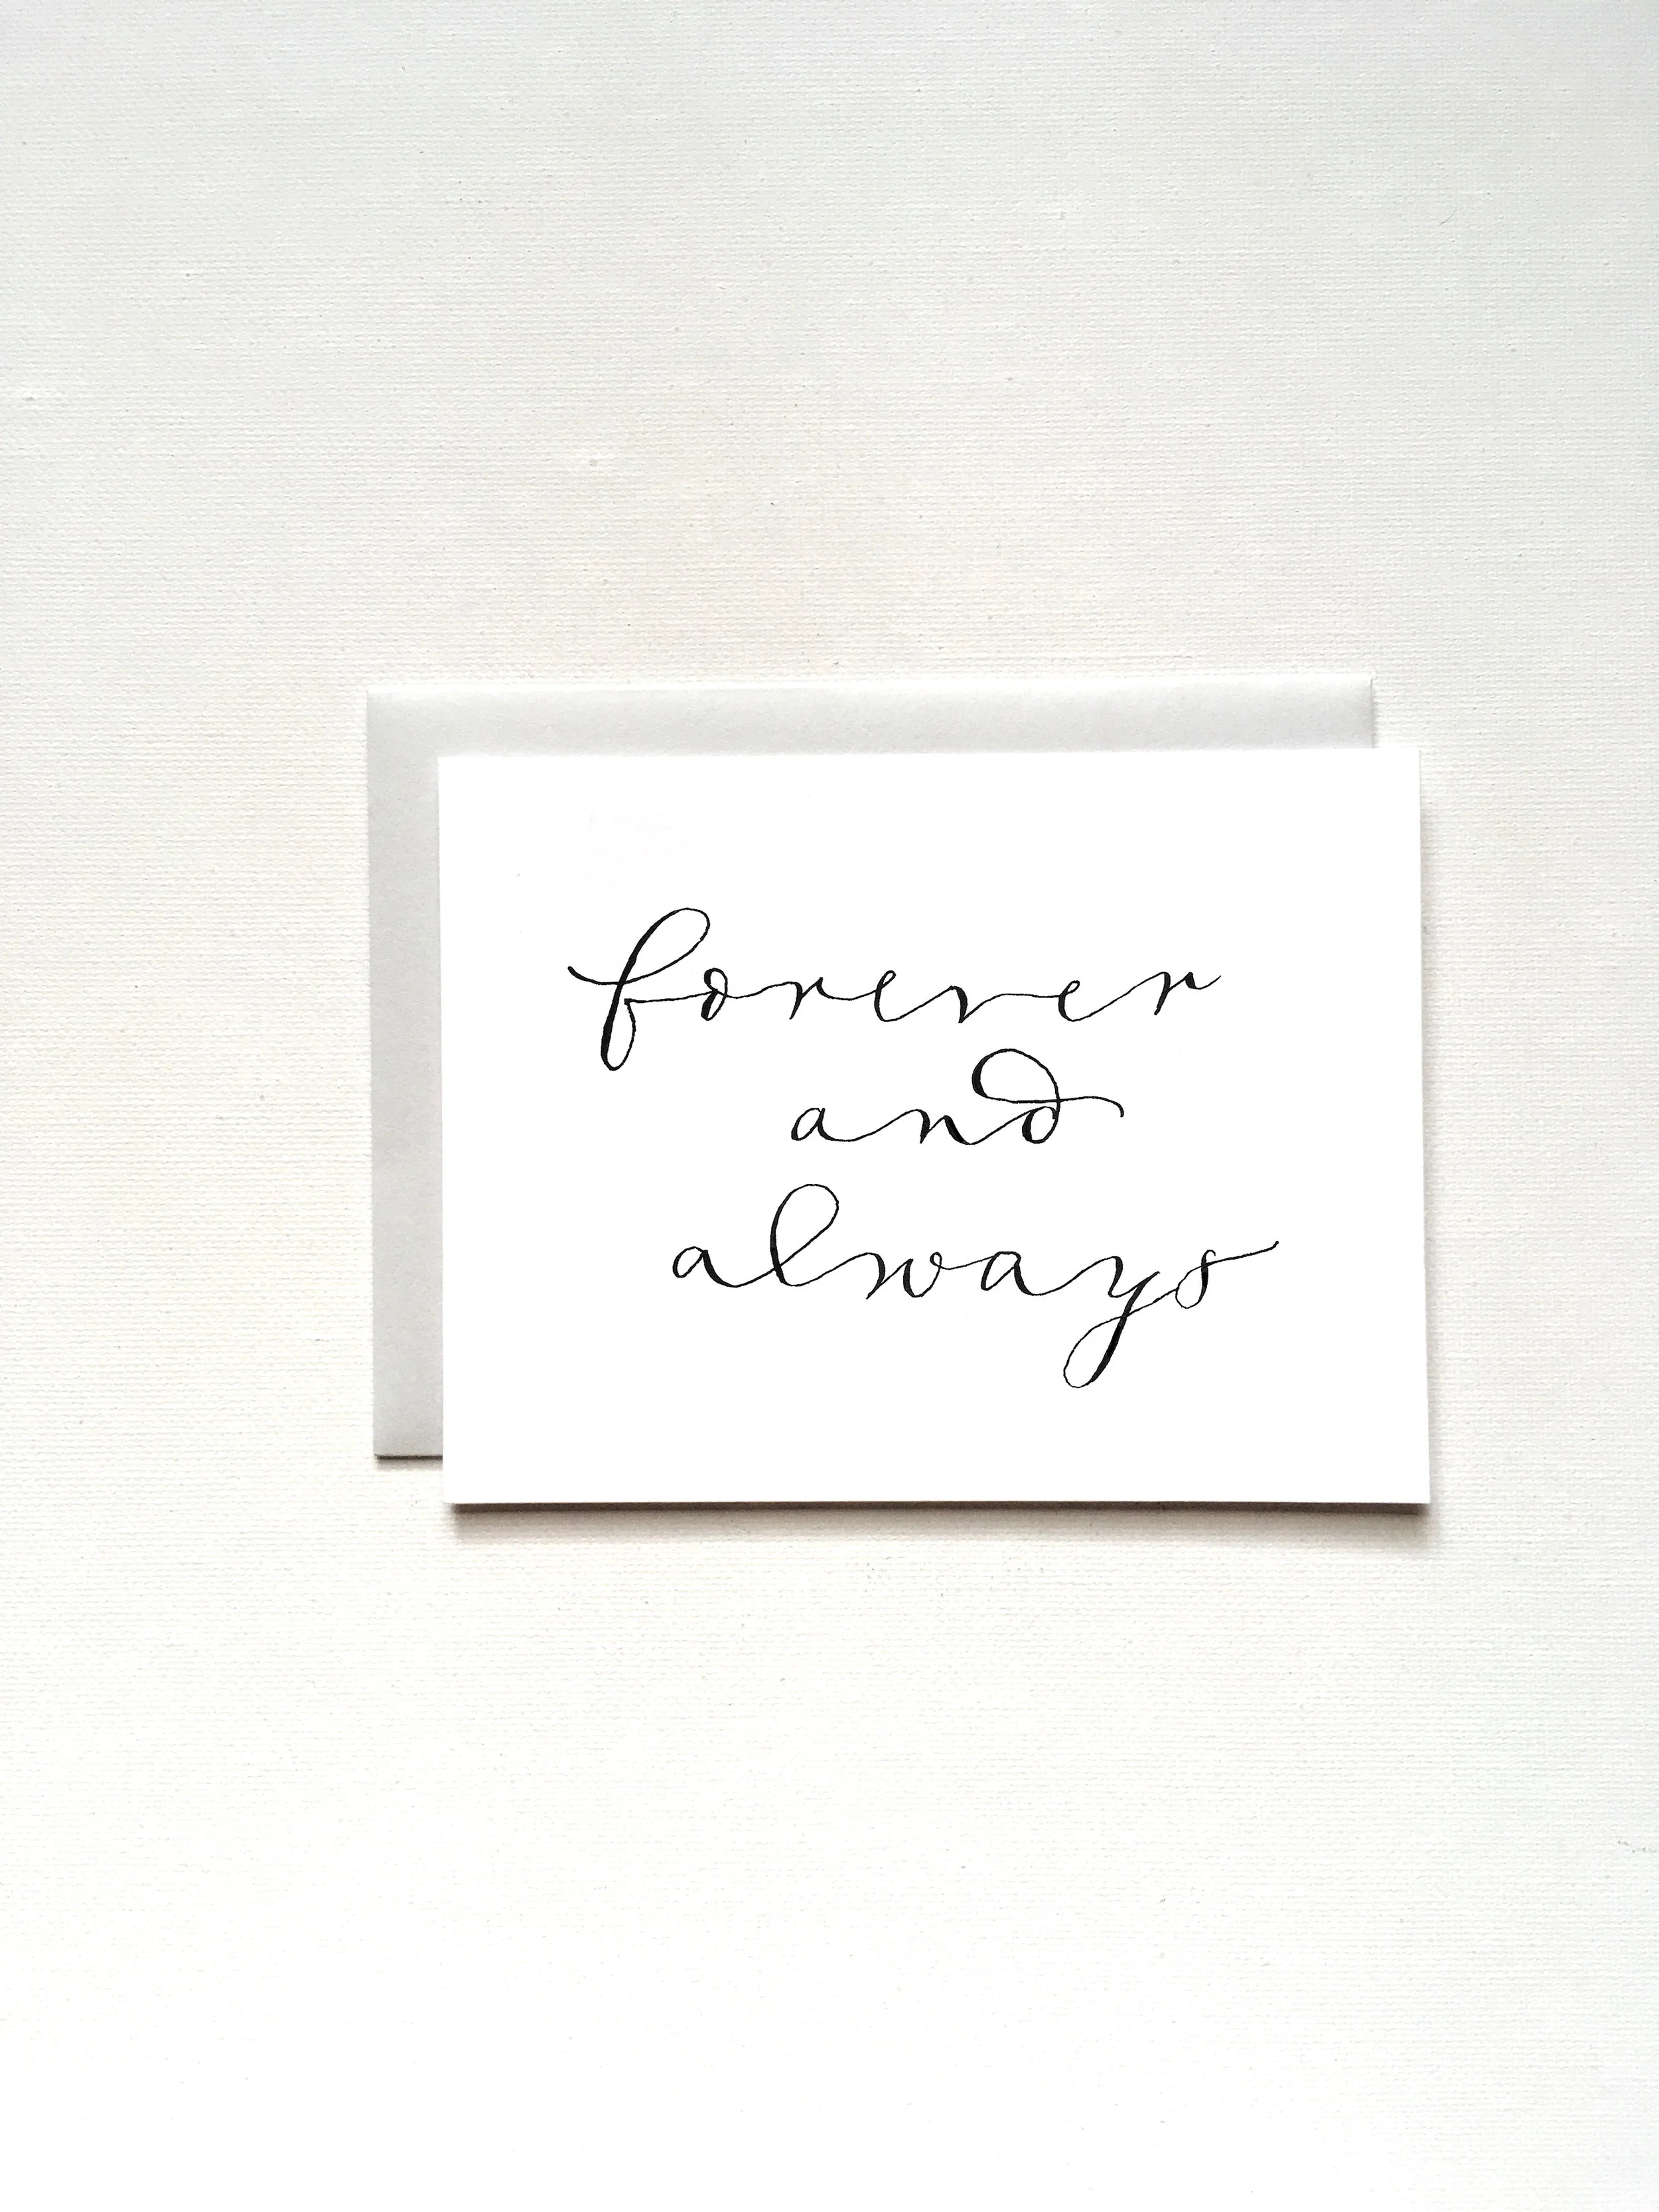 forever
and
always